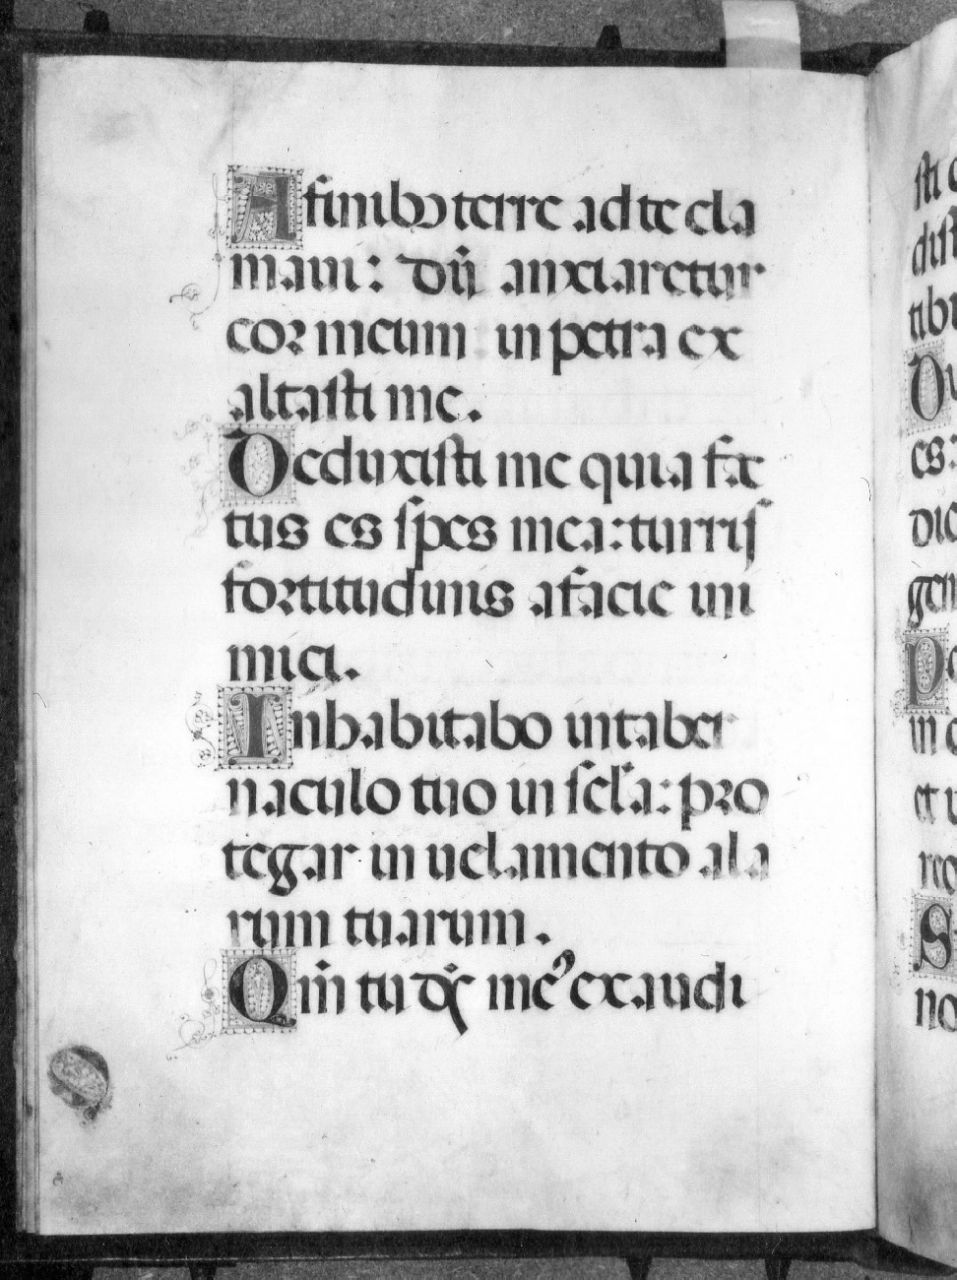 A finibꝰ terre ad te cla
maui: dū anxiaretur
cor meum in petra ex
altasti me.
Deduxisti me quia fac
tus es spes mea: turris
fortitudinis a facie ini
mici.
Inhabitabo in taber
naculo tuo in scl̃a: pro
tegar in uelamento ala
rum tuarum.
Qm̄ tu ds̄ meꝰ exaudi
sti
dist
tibi
es:
dic
gen
P
in
et
S
no